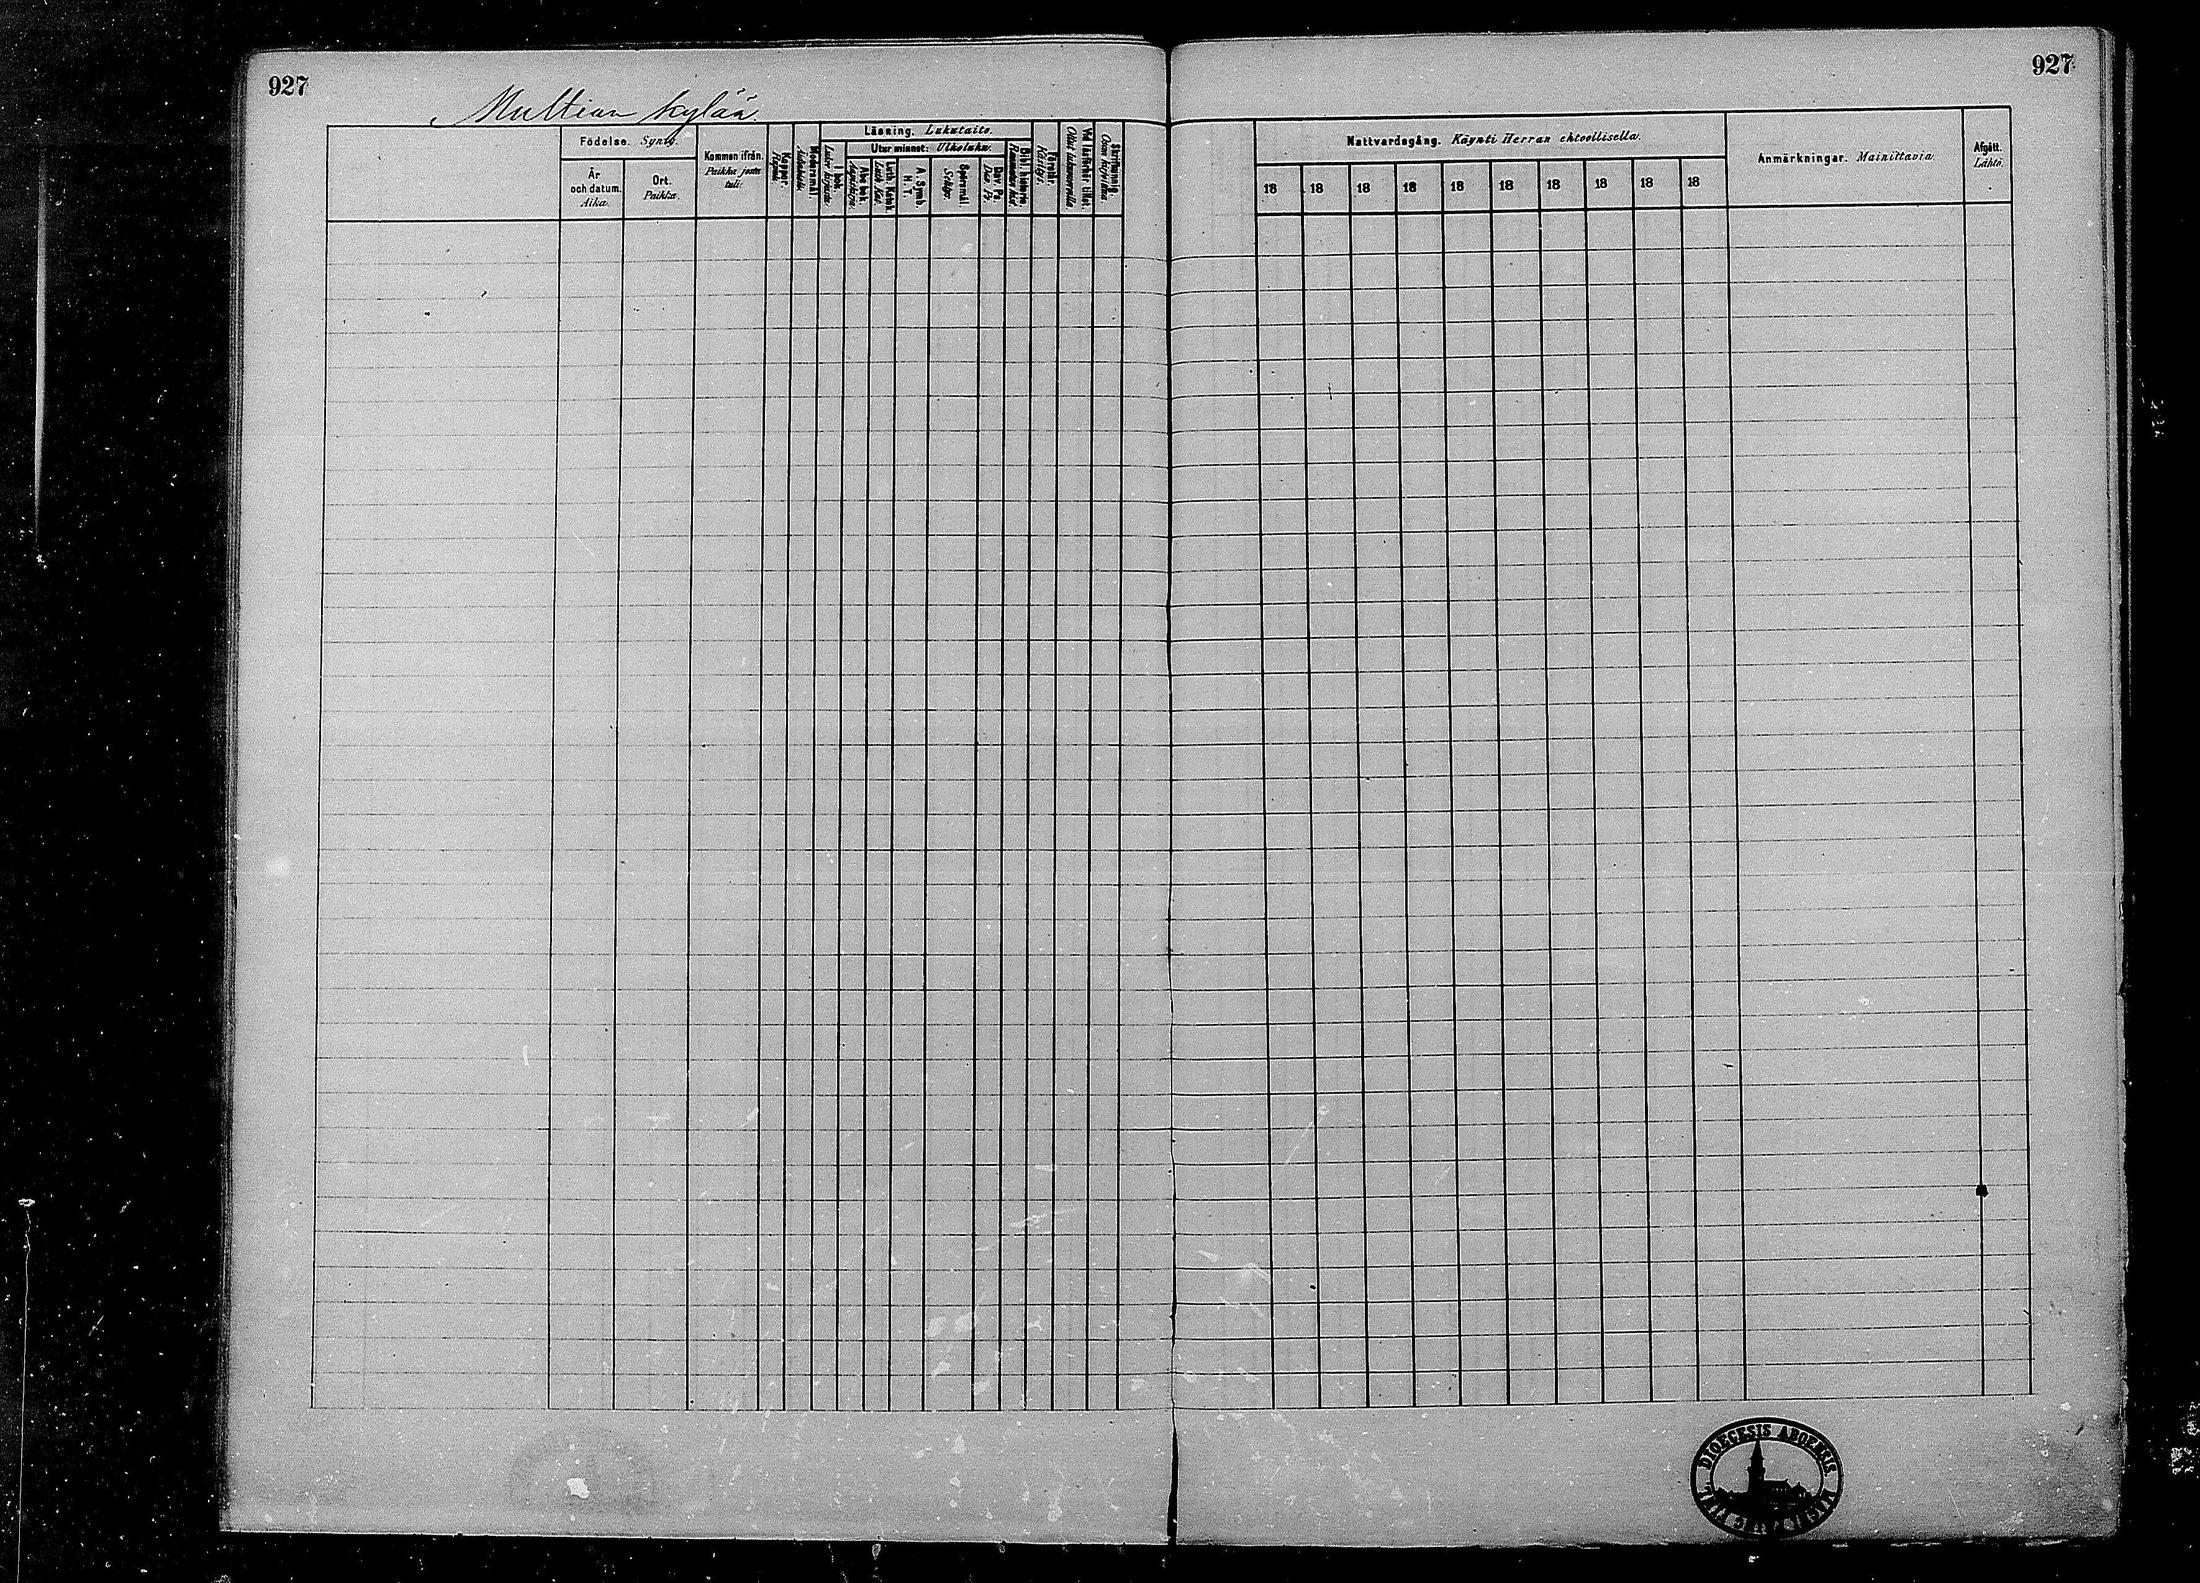 927
927
Multian kylää.
Födelse. Synty.
År och datum. Aika.
Ort. Paikka.
Kommen ifrån. Paikka josta tuli.
Koppor. Rupuli.
Modersmål.
Läsning. Lukutaito.
Utur minnet: Ulkoluku.
Luth. Katek.
A. Symb. H. T.
Spörsmål
Dav. Ps. Dav. Ps.
Bibl. historia
Förstår. Käsitys.
Skriftkunnig.
Nattvardsgång. Käynti Herran ehtoollisella.
18 18 18 18 18 18 18 18 18 18
Anmärkningar. Mainittavia.
Afgått. Lähtö.
DIOECESIS ABOENSIS